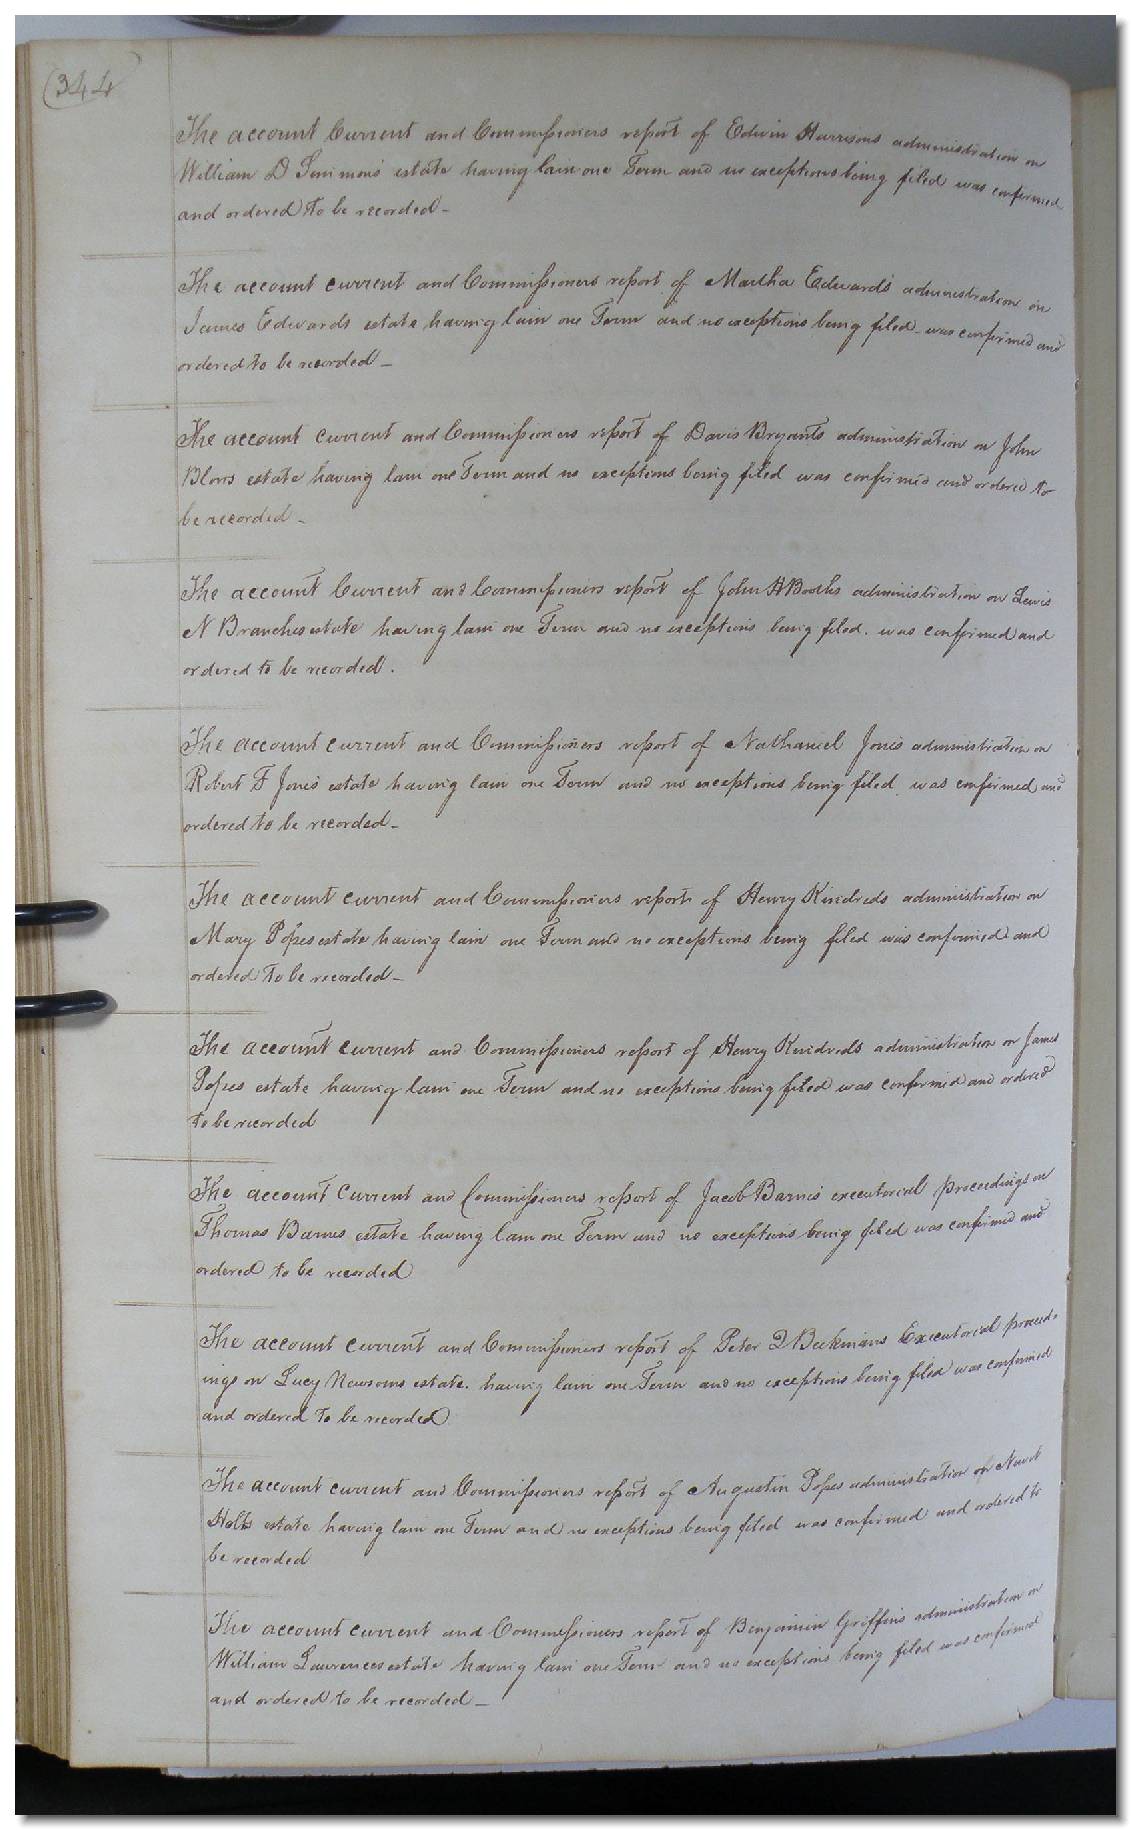 (344
The account Current and Commissioners report of Edwin Harrisons administration on
William D Simmons estate having lain one Term and no exceptions being filed was confirmed
and ordered to be recorded -
The account current and Commissioners report of Martha Edwards administration on
James Edwards estate having lain one Term and no exceptions being filed - was confirmed and
ordered to be recorded -
The account current and Commissioners report of Davis Bryants administration on John
Blows estate having lain one Term and no exceptions being filed was confirmed and ordered to
be recorded -
The account Current and Commissioners report of John H Booths administration on Lewis
N Branches estate having lain one Term and no exceptions being filed. was confirmed and
ordered to be recorded.
The account current and Commissioners report of Nathaniel Jones administration on
Robert F Jones estate having lain one Term and no exceptions being filed was confirmed and
ordered to be recorded -
The account current and Commissioners report of Henry Kindreds administration on
Mary Popes estate having lain one Term and no exceptions being filed was confirmed and
ordered to be recorded -
The account current and Commissioners report of Henry Kindreds administration on James
Popes estate having lain one Term and no exceptions being filed was confirmed and ordered
to be recorded
The account Current and Commissioners report of Jacob Barnes executorial proceedings on
Thomas Barnes estate having lain one Term and no exceptions being filed was confirmed and
ordered to be recorded
The account current and Commissioners report of Peter Beekmans Executorial proceed-
ings on Lucy Newsoms estate. having lain one Term and no exceptions being filed was confirmed
and ordered to be recorded
The account current and Commissioners report of Augustin Popes administration on
Holts estate having lain one Term and no exceptions being filed was confirmed and ordered to
be recorded
The account current and Commissioners report of Benjamin Griffins administration on
William Lawrences estate having lain one Term and no exceptions being filed was confirmed
and ordered to be recorded -